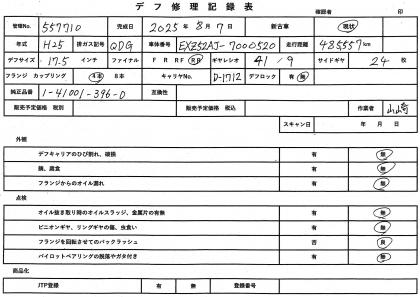 デフ修理記録表
確認者 印
管理No. 557710 完成日 2025 年 8 月 7 日 新古車 現状
年式 H25 排ガス記号 QDG 車体番号 EXZ52AJ-7000520 走行距離 485557 km
デフサイズ 17.5 インチ ファイナル F R RF RR ギヤレシオ 41/9 サイドギヤ 24 枚
フランジ カップリング 4本 8本 キャリヤNo. D-1712 デフロック 有 無
純正品番 1-41001-396-0 互換性
販売予定価格 税別 販売予定価格 税込 作業者 山崎
スキャン日 年 月 日
外観
デフキャリアのひび割れ、破損 有 無
錆、腐食 有 無
フランジからのオイル漏れ 有 無
点検
オイル抜き取り時のオイルスラッジ、金属片の有無 有 無
ピニオンギヤ、リングギヤの傷、虫食い 有 無
フランジを回転させてのバックラッシュ 否 良
パイロットベアリングの脱落やガタ付き 有 無
商品化
JTP登録 有 無 登録番号